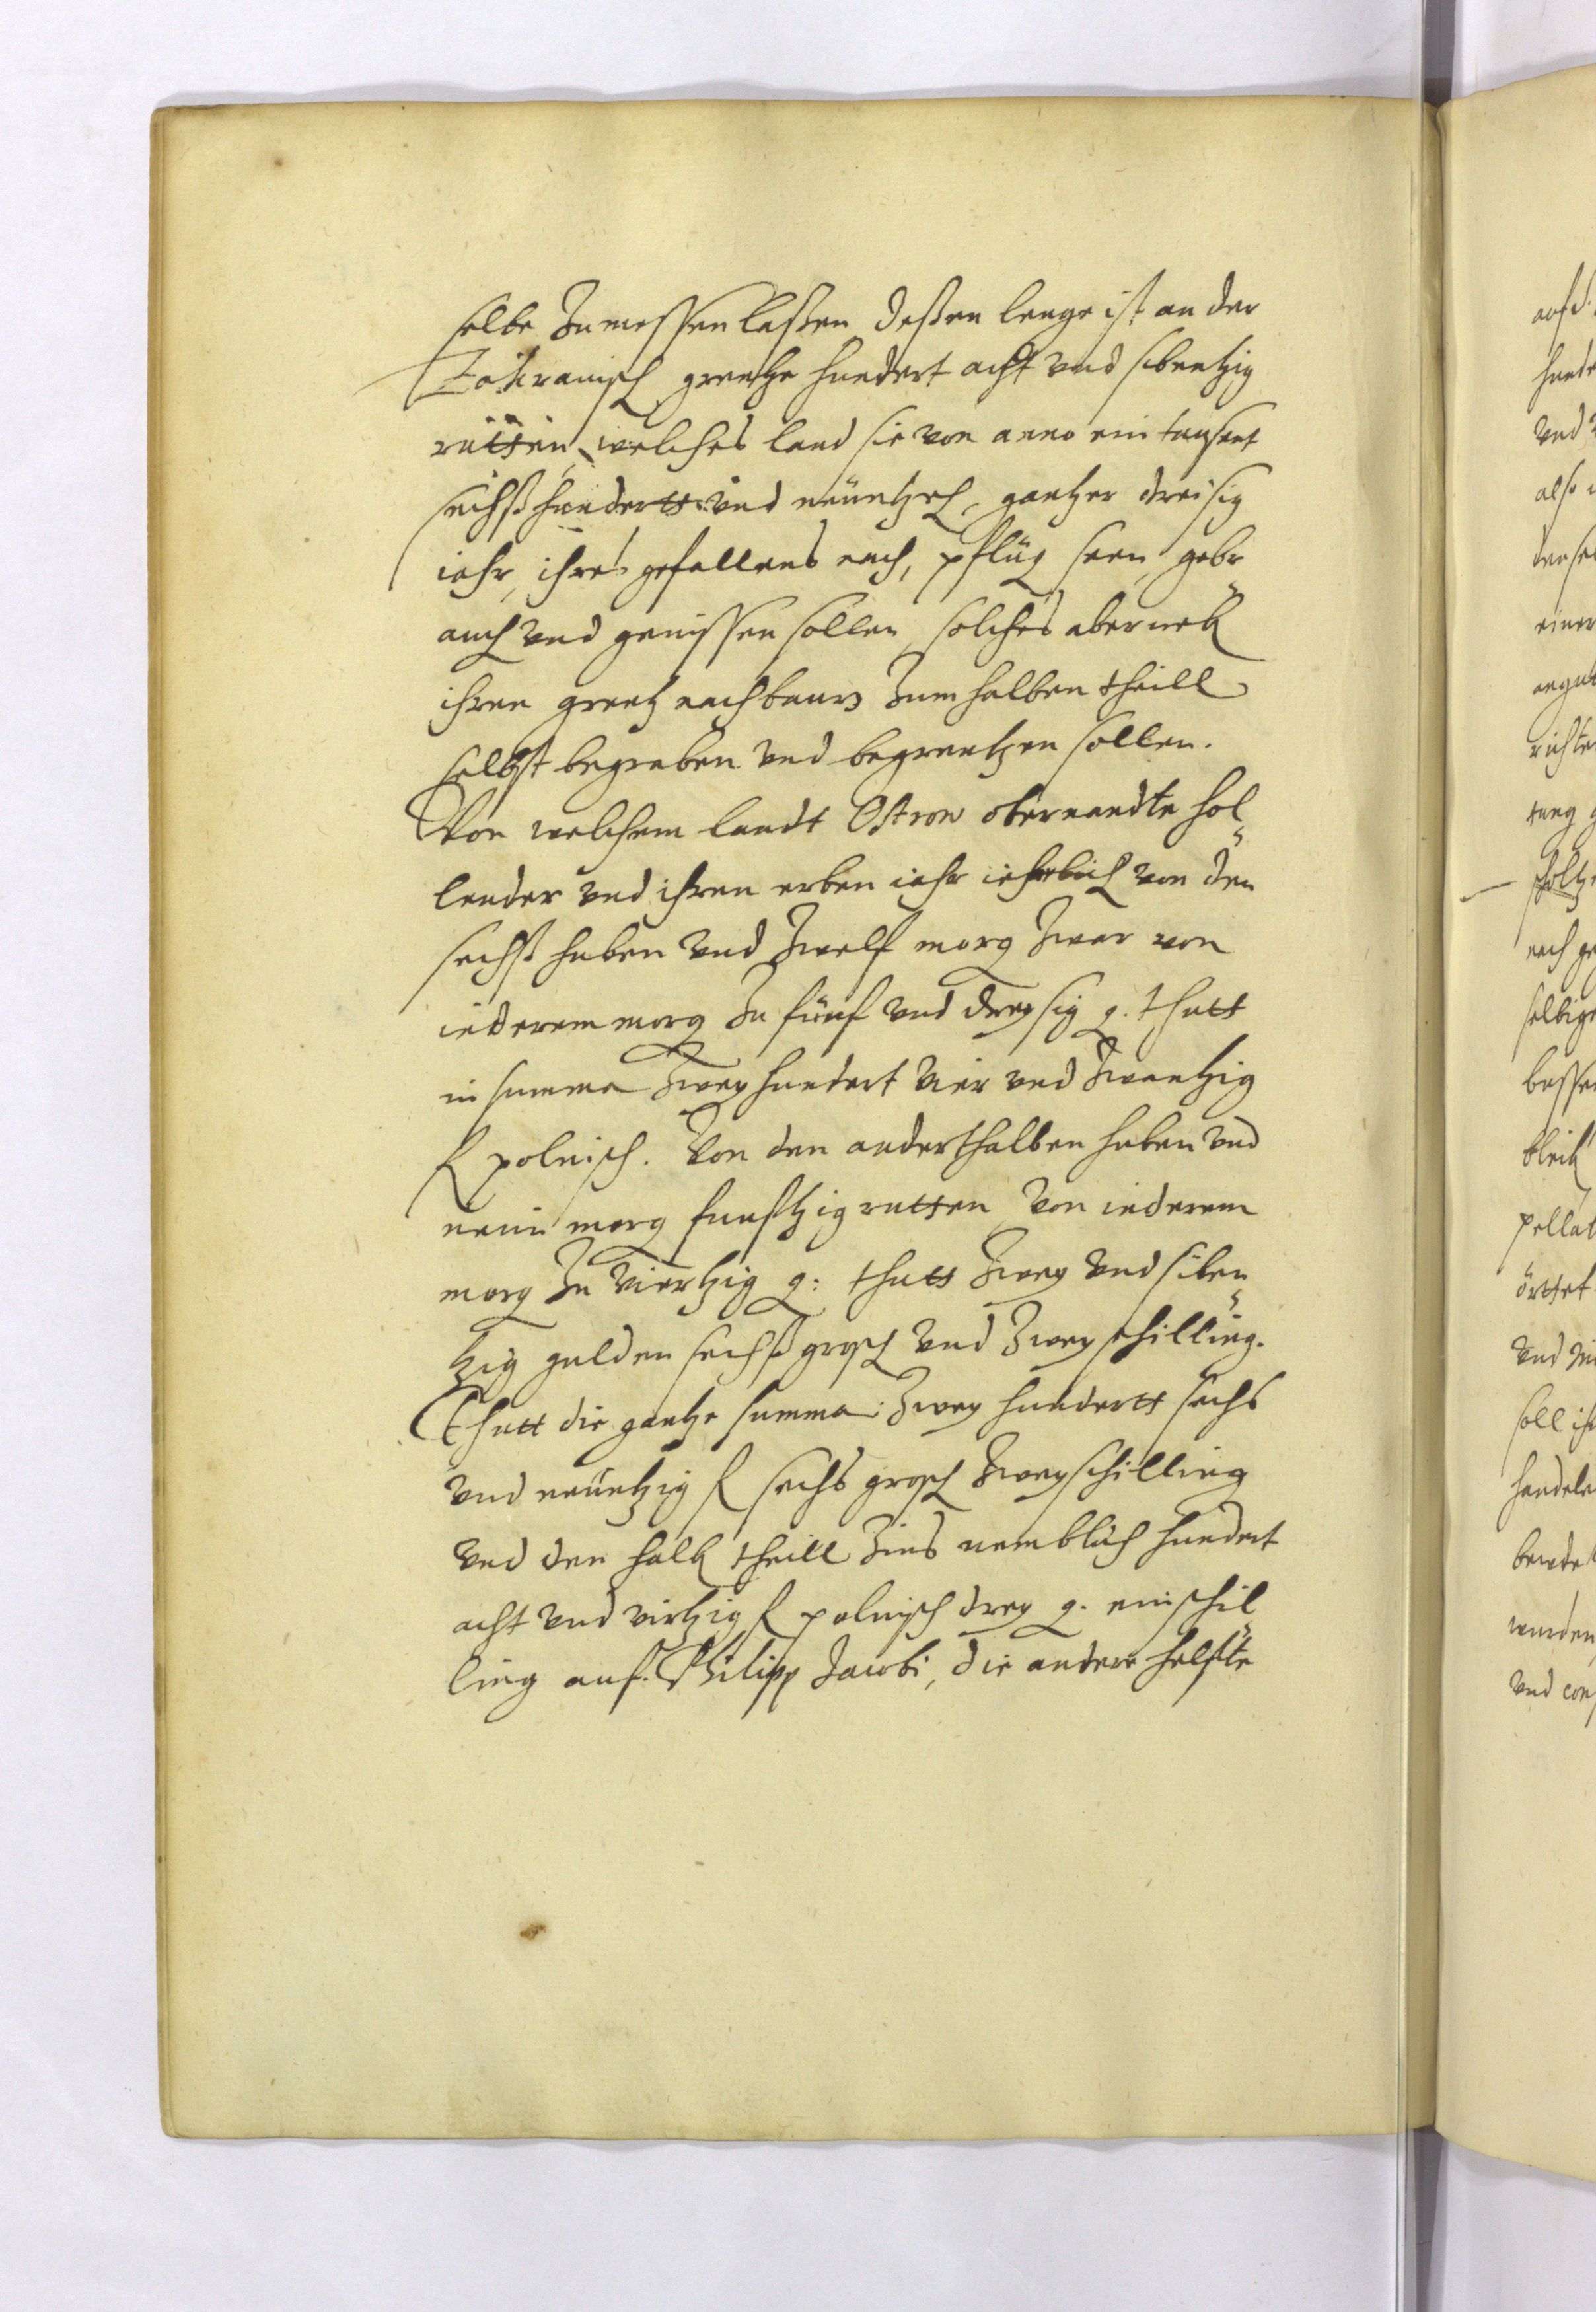 selbe Zumessen laßen deßen lenge ist an der
Zakranisch grentze hundert acht und sibentzig
rutten, welches land sie von anno ein tausent
sechßhundertt und neuntzeh, gantzer dreisig
iahr, ihres gefallens nach, pflug seen, gebr
auch und genissen sollen, solches aber neb
ihren grentz nachbaurn Zum halben theill
selbst begraben und begrentzen sollen.
Von welchem landt Ostrow obernandte hol
lender und ihren erben iahr iehrlich von den
sechß huben und Zwelf morg Zwar von
iederem morg Zu fünf und dreysig g. thutt
in summa Zwey hundert vier und Zwantzig
f polnisch. Von den anderthalben huben und
neun morg funftzig rutten von iederem
morg Zu viertzig g: thutt Zwey und siben
tzig gulden sechß grosch und Zwey schilling.
Thutt die gantze summa: Zwey hundertt sechs
und neuntzig f sechs grosch Zwey schilling
und den halb theill Zins nemblich hundert
acht und virtzig f polnisch drey g. ein schil
ling auf Philipp Jacobi, die andere helfte
hunde
und
also
einer
richte
nach ge
selbige
besser
bleib
pellat
soll ih
wurden
und con